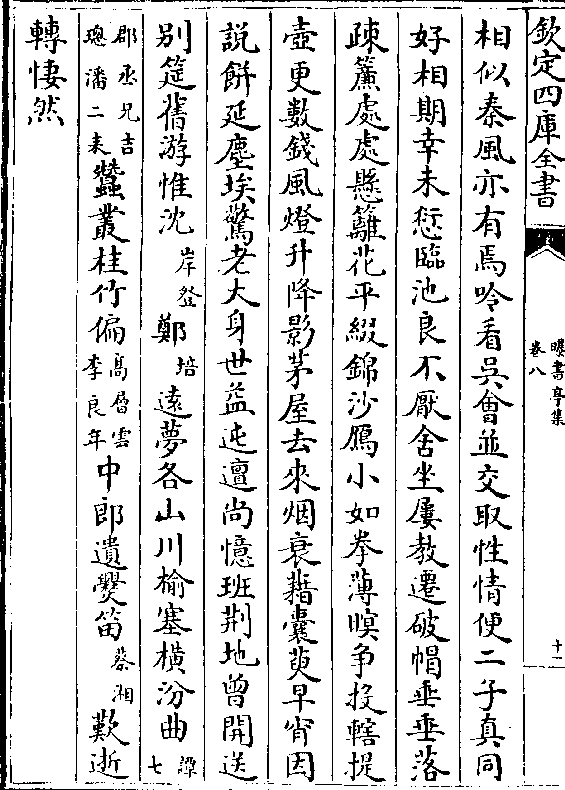 欽定四庫全書
曝書亭集
卷八
十一
相似秦風亦有焉吟看吳會並交取性情便二子真同
好相期幸未愆臨池良不厭舍坐屢教遷破帽垂垂落
疎簾處處懸籬花平綴錦沙鴈小如拳薄暝争投轄提
壺更數錢風燈升降影茅屋去來烟衰藉囊萸早宵因
說餅延塵埃驚老大身世益迍邅尚憶班荆地曾開送
別筵舊游惟沈岸登鄭培遠夢各山川榆塞橫汾曲譚七
郡丞兄吉璁潘二耒蠶叢桂竹偏高層雲李良年中郎遺爨笛蔡湘歎逝
轉悽然